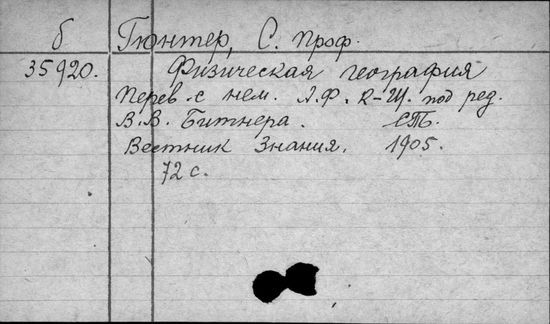 б Гюнтер, С. проф.
35920. Физическая география
Перев. с нем. Л.Ф. Я-Щ. под ред.
В.В. Битнера. СПб.
Вестник Знания, 1905.
72 с.